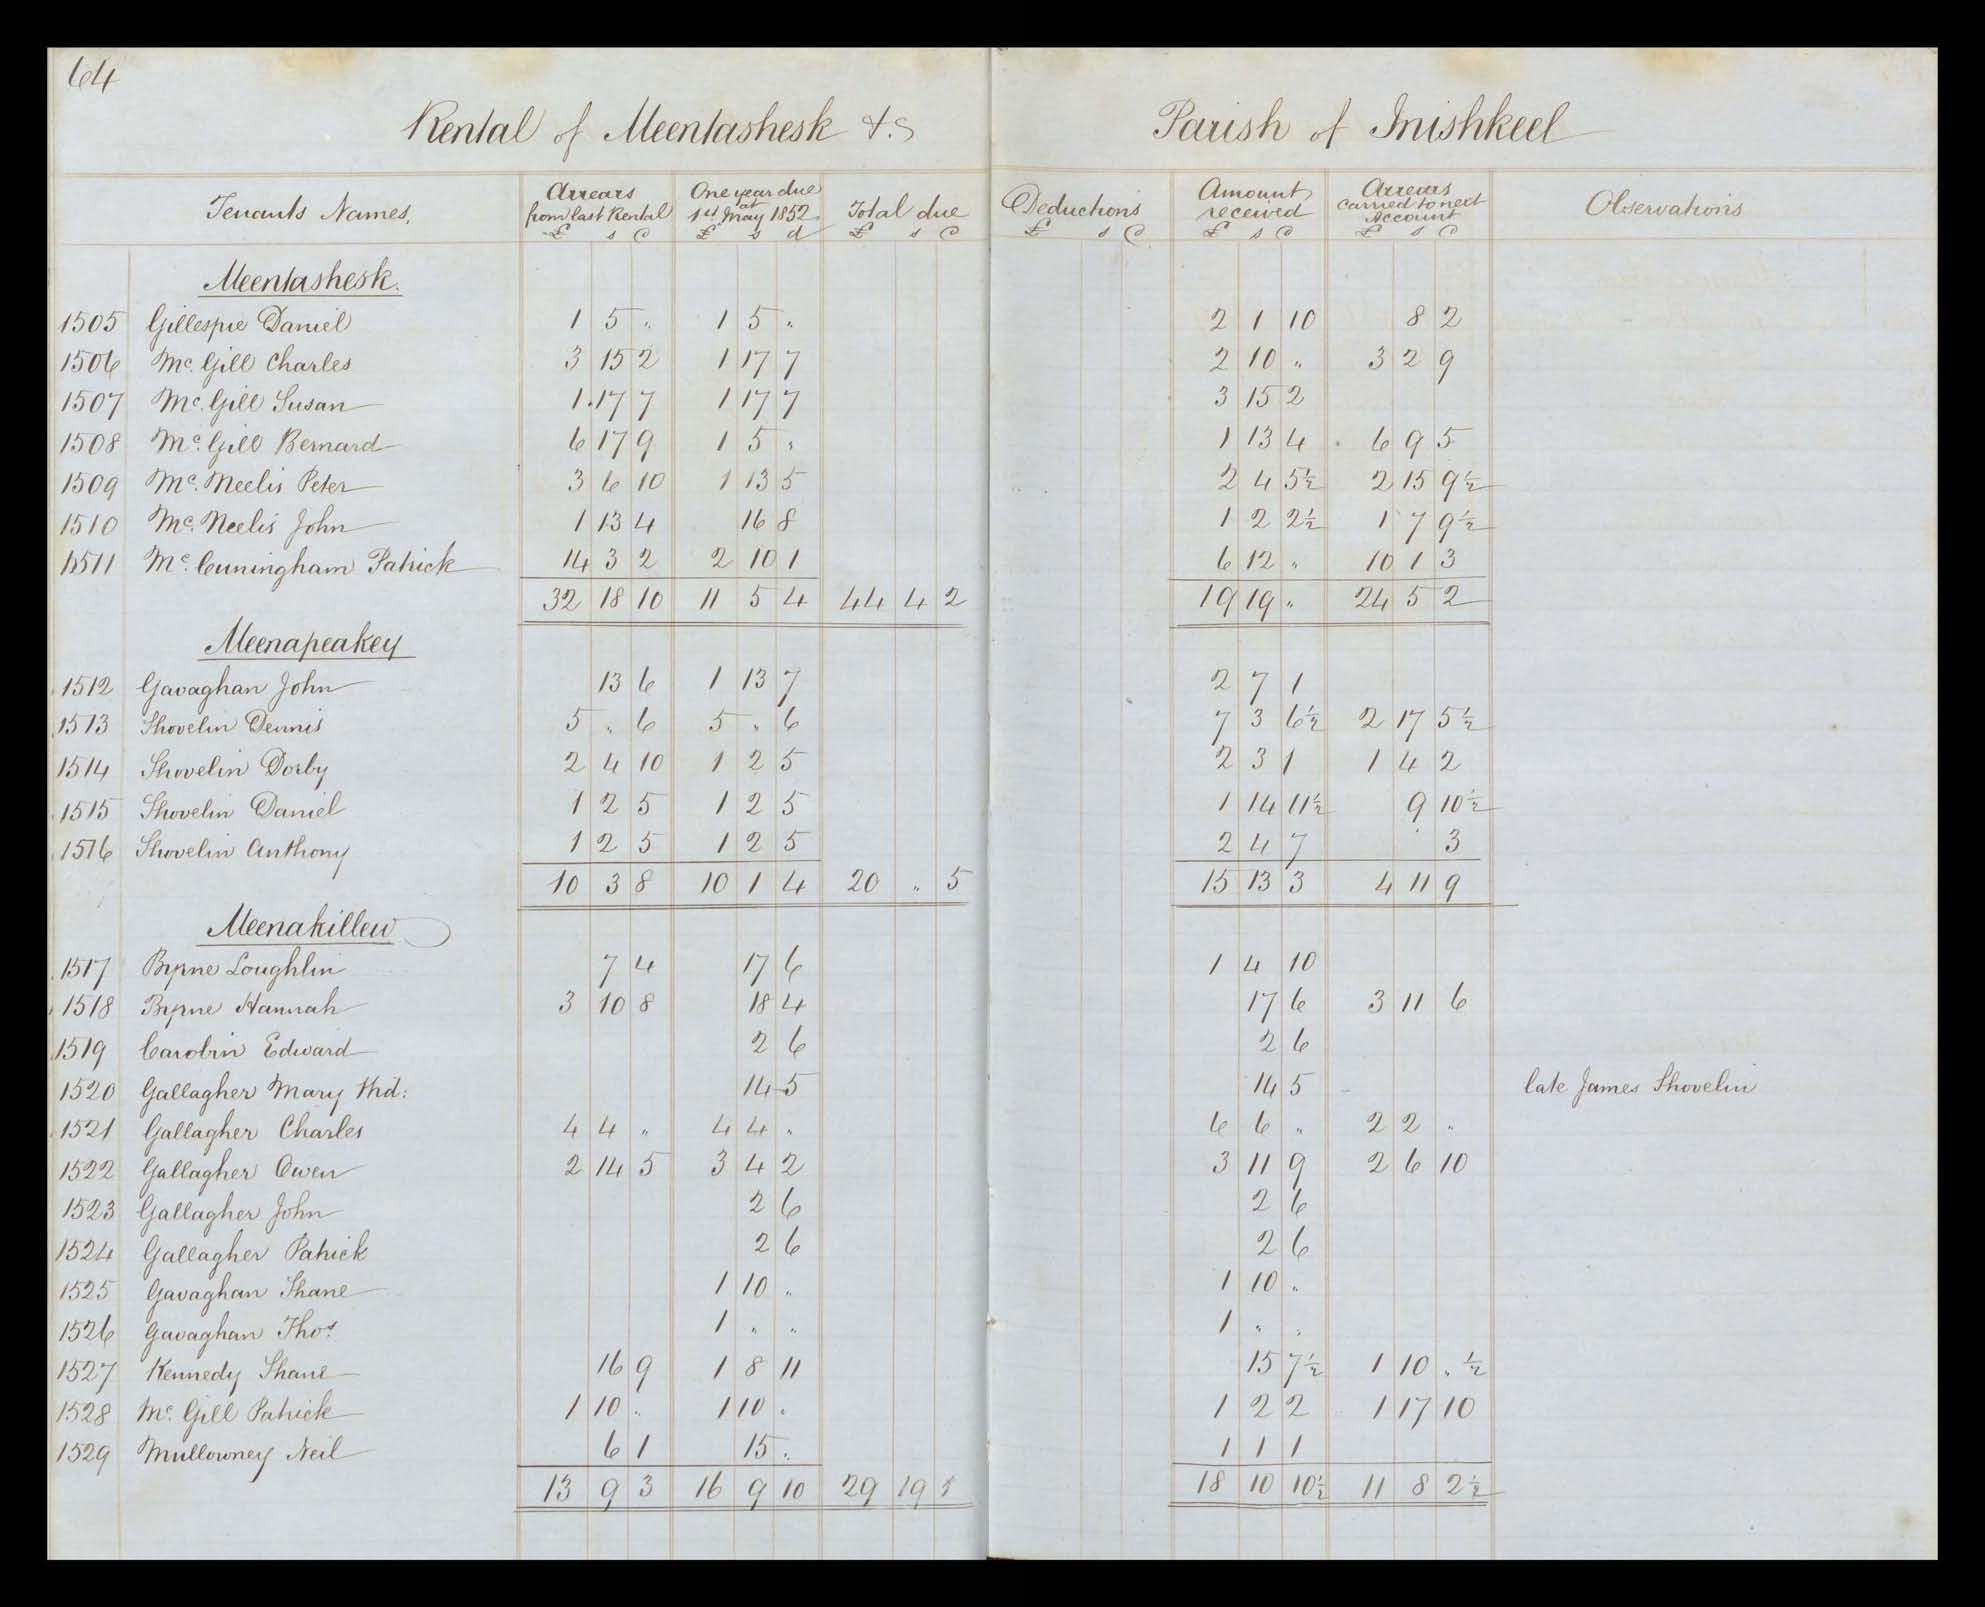 64
Rental of Meentashesk &.c
Parish of Inishkeel
Tenants Names. Arrears from last Rental £ s d One year due at 1st May 1852 £ s d Total due £ s d Deductions £ s d Amount received £ s d Arrears carried to next Account £ s d Observations
Meentashesk.
1505 Gillespie Daniel 1 5 „ 1 5 „ 2 1 10 8 2
1506 Mc. Gill Charles 3 15 2 1 17 7 2 10 „ 3 2 9
1507 Mc. Gill Susan 1 17 7 1 17 7 3 15 2
1508 Mc. Gill Bernard 6 17 9 1 5 „ 1 13 4 6 9 5
1509 Mc. Neelis Peter 3 6 10 1 13 5 2 4 5½ 2 15 9½
1510 Mc. Neelis John 1 13 4 16 8 1 2 2½ 1 7 9½
1511 Mc. Cuningham Patrick 14 3 2 2 10 1 6 12 „ 10 1 3
32 18 10 11 5 4 44 4 2 19 19 „ 24 5 2
Meenapeakey
1512 Gavaghan John 13 6 1 13 7 2 7 1
1513 Shovelin Dennis 5 „ 6 5 „ 6 7 3 6½ 2 17 5½
1514 Shovelin Dorby 2 4 10 1 2 5 2 3 1 1 4 2
1515 Shovelin Daniel 1 2 5 1 2 5 1 14 11½ 9 10½
1516 Shovelin Anthony 1 2 5 1 2 5 2 4 7 3
10 3 8 10 1 4 20 „ 5 15 13 3 4 11 9
Meenakillew
1517 Byrne Loughlin 7 4 17 6 1 4 10
1518 Byrne Hannah 3 10 8 18 4 17 6 3 11 6
1519 Carobin Edward 2 6 2 6
1520 Gallagher Mary Wid: 14 5 14 5 late James Shovelin
1521 Gallagher Charles 4 4 „ 4 4 „ 6 6 „ 2 2 „
1522 Gallagher Owen 2 14 5 3 4 2 3 11 9 2 6 10
1523 Gallagher John 2 6 2 6
1524 Gallagher Patrick 2 6 2 6
1525 Gavaghan Shane 1 10 „ 1 10 „
1526 Gavaghan Thos. 1 „ „ 1 „ „
1527 Kennedy Shane 16 9 1 8 11 15 7½ 1 10 „ ½
1528 Mc. Gill Patrick 1 10 „ 1 10 „ 1 2 2 1 17 10
1529 Mullowney Neil 6 1 15 „ 1 1 1
13 9 3 16 9 10 29 19 1 18 10 10½ 11 8 2½